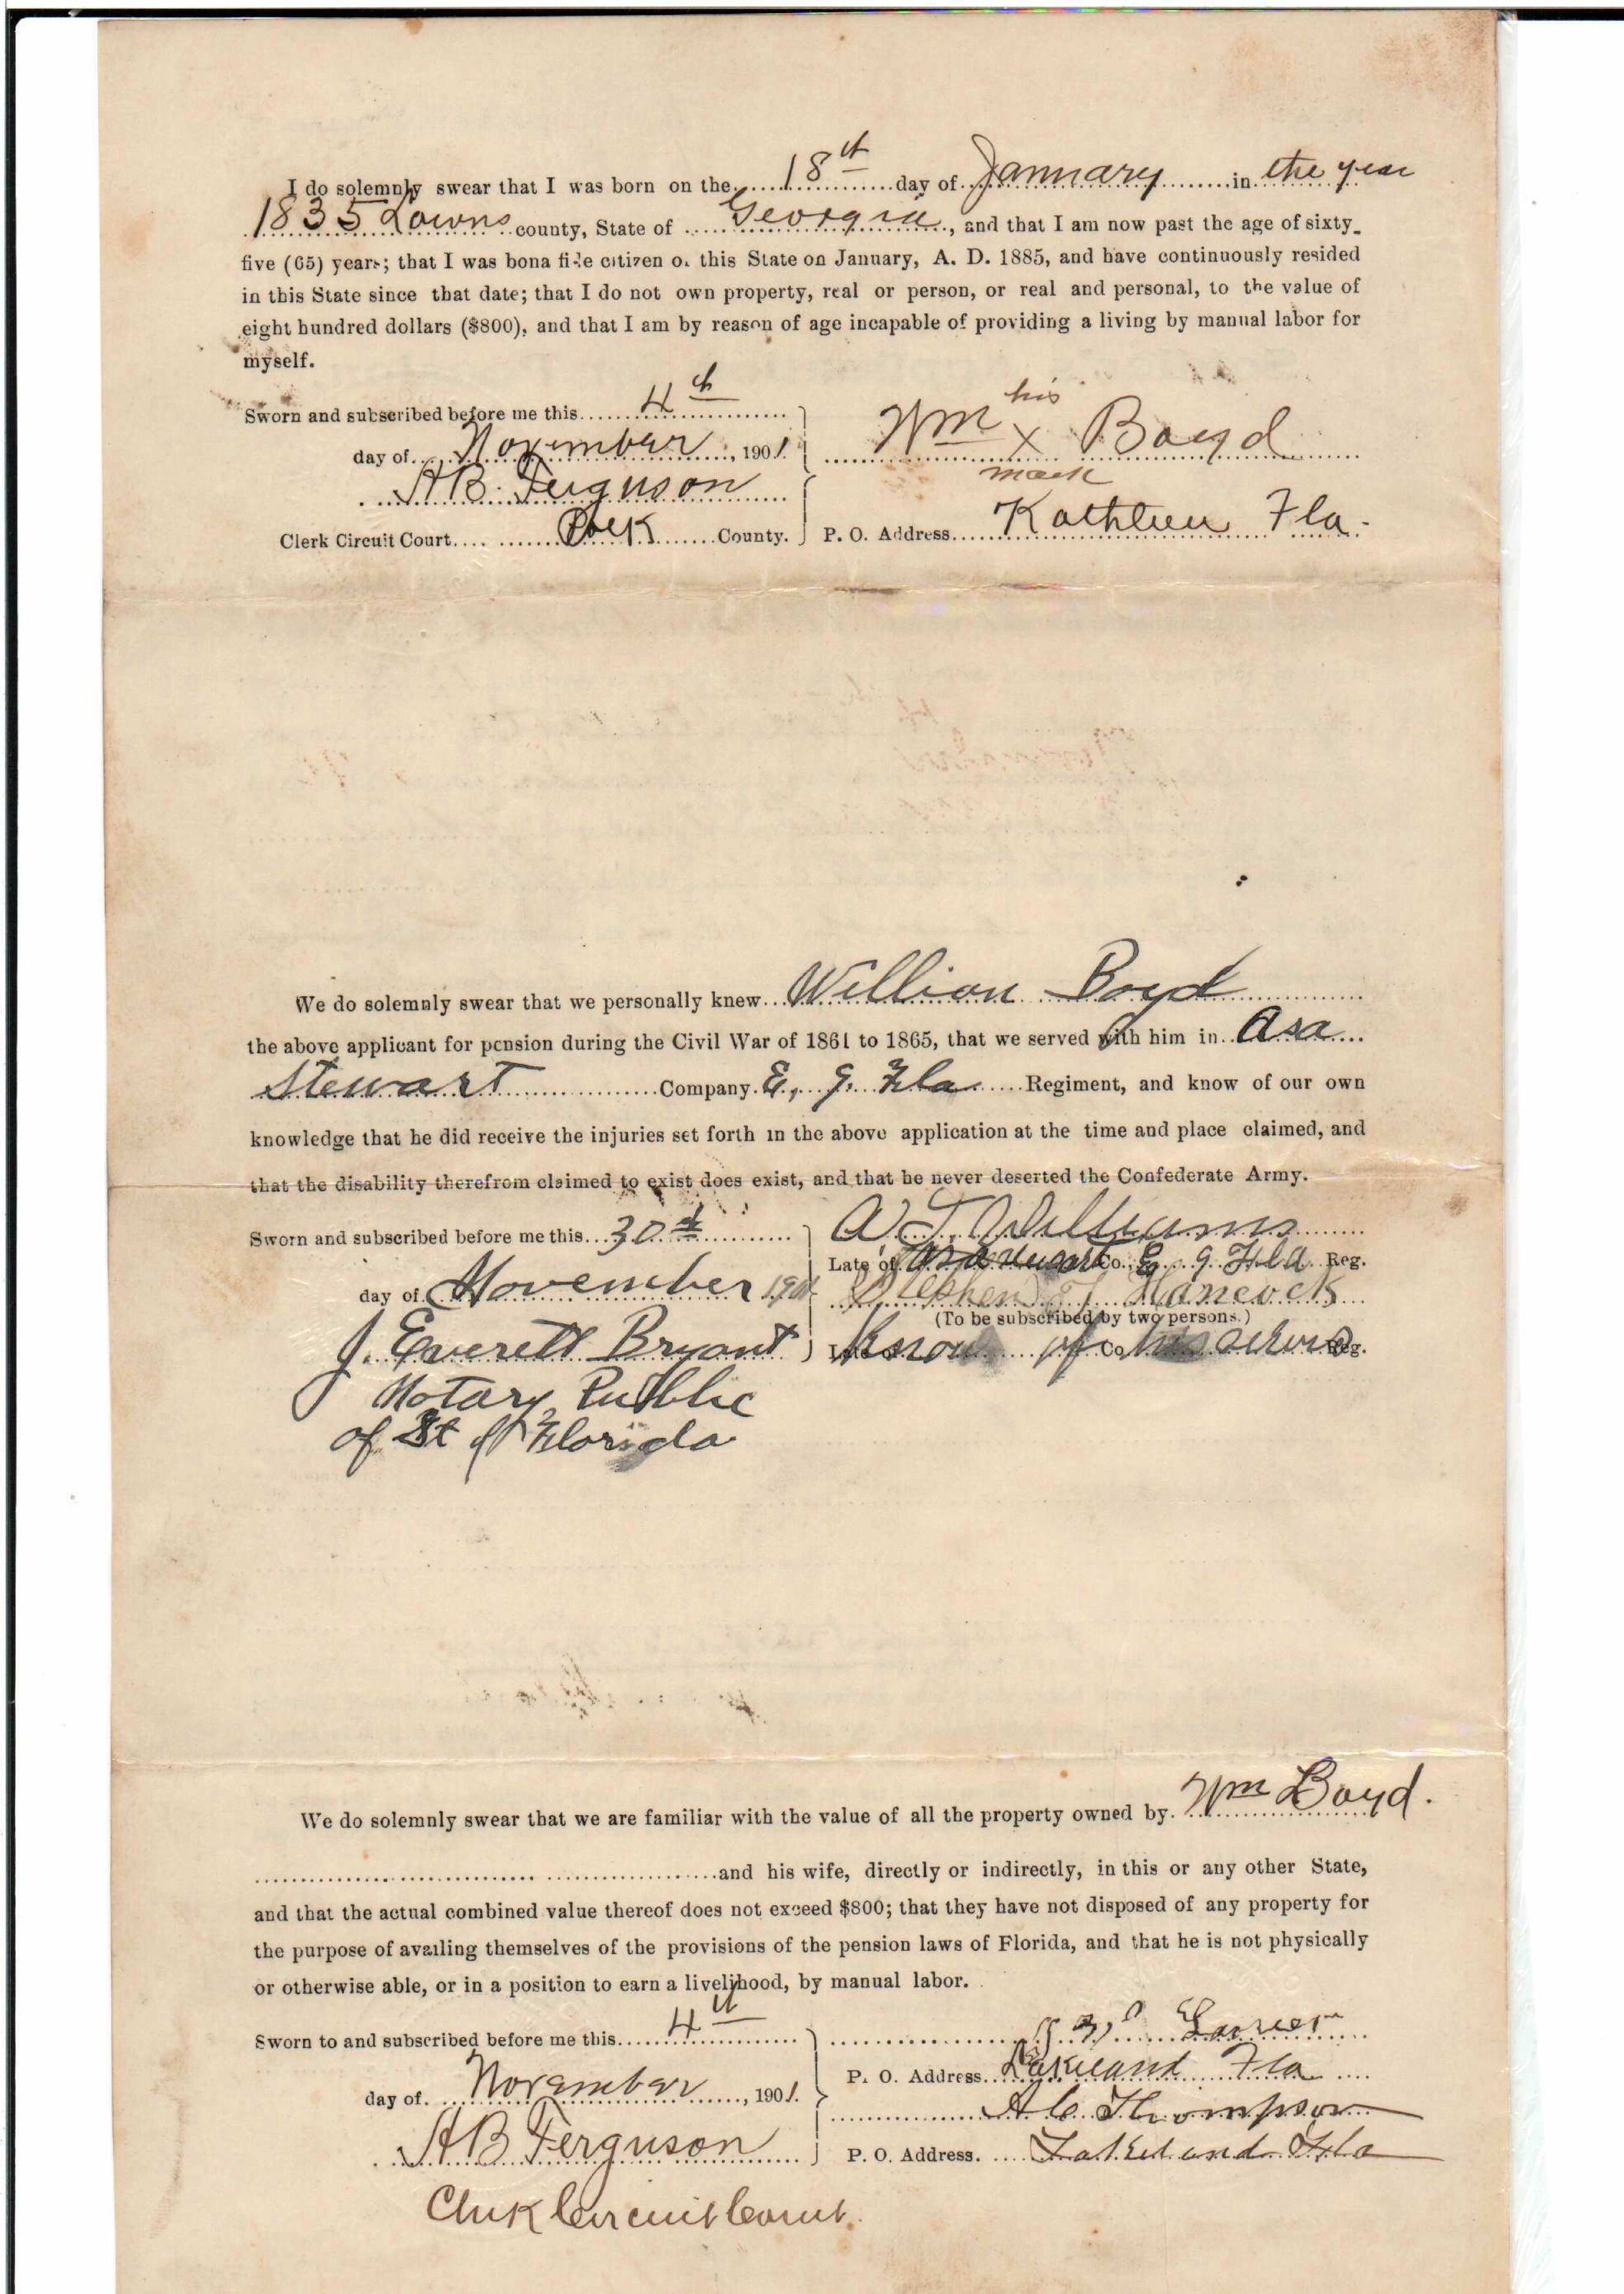 I do solemnly swear that I was born on the 18th day of January in the year
1835 Lowns county, State of Georgia, and that I am now past the age of sixty-
five (65) years; that I was bona fide citizen of this State on January, A. D. 1885, and have continuously resided
in this State since that date; that I do not own property, real or person, or real and personal, to the value of
eight hundred dollars ($800), and that I am by reason of age incapable of providing a living by manual labor for
myself.
Sworn and subscribed before me this 4th
day of November, 1901.
H B Ferguson
Clerk Circuit Court Polk County.
his
Wm x Boyd
mark
P. O. Address Kathleen Fla.
We do solemnly swear that we personally knew William Boyd
the above applicant for pension during the Civil War of 1861 to 1865, that we served with him in Asa
Stewart Company E, 9. Fla Regiment, and know of our own
knowledge that he did receive the injuries set forth in the above application at the time and place claimed, and
that the disability therefrom claimed to exist does exist, and that he never deserted the Confederate Army.
Sworn and subscribed before me this 30th
day of November 1901
J. Everett Bryant
Notary Public
of St of Florida
A. T. Williams
Late of Asa Stewart Co. E, 9 Fla Reg.
Stephen T Hancock
(To be subscribed by two persons.)
Late of know of Co his Reg.
We do solemnly swear that we are familiar with the value of all the property owned by Wm Boyd.
and his wife, directly or indirectly, in this or any other State,
and that the actual combined value thereof does not exceed $800; that they have not disposed of any property for
the purpose of availing themselves of the provisions of the pension laws of Florida, and that he is not physically
or otherwise able, or in a position to earn a livelihood, by manual labor.
Sworn to and subscribed before me this 4th
day of November, 1901.
H B Ferguson
Clerk Circuit Court.
Lanier
P. O. Address Lakeland Fla
A C Thompson
P. O. Address. Lakeland Fla